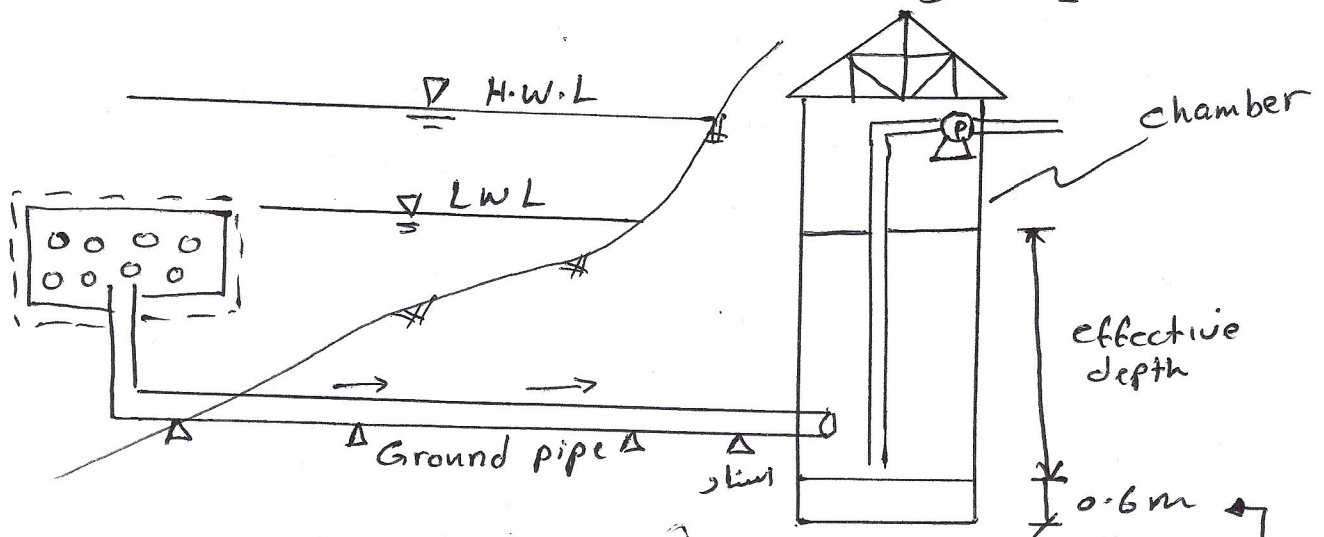 H.W.L
chamber
LWL
P
effective
depth
Ground pipe
اسناد
0.6m